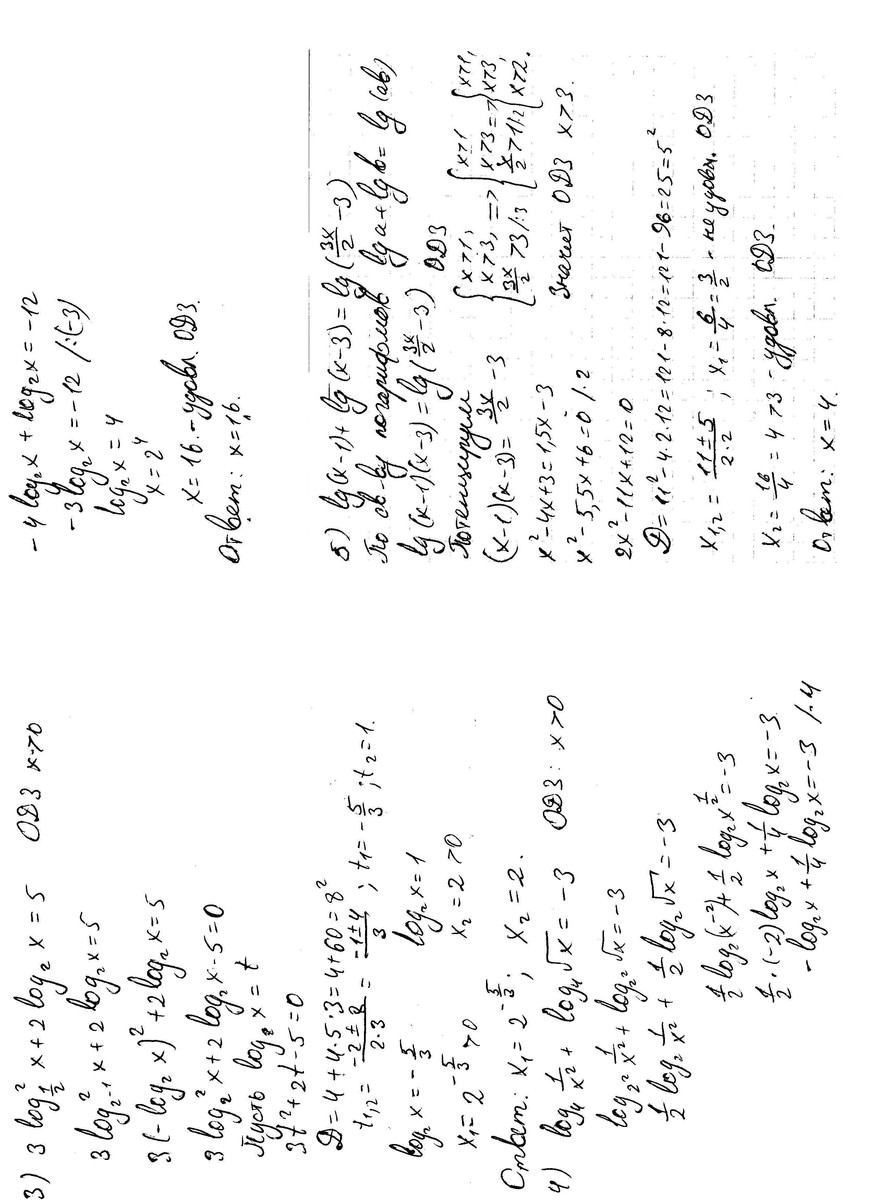 3) 3 log²_{1/2} x + 2 log₂ x = 5   ОДЗ x>0
3 log²_{2⁻¹} x + 2 log₂ x = 5
3 (-log₂ x)² + 2 log₂ x = 5
3 log₂² x + 2 log₂ x - 5 = 0
Пусть log₂ x = t
3t² + 2t - 5 = 0
D = 4 + 4·5·3 = 4 + 60 = 8²
t₁,₂ = (-2 ± 8)/(2·3) = (-1 ± 4)/3 ; t₁ = -5/3 ; t₂ = 1.
log₂ x = -5/3   log₂ x = 1
x₁ = 2^{-5/3} > 0   x₂ = 2 > 0
Ответ: x₁ = 2^{-5/3} ; x₂ = 2.
4) log₄ 1/x² + log₄ √x = -3   ОДЗ: x>0
log_{2²} 1/x² + log_{2²} √x = -3
1/2 log₂ 1/x² + 1/2 log₂ √x = -3
1/2 log₂(x⁻²) + 1/2 log₂ x^{1/2} = -3
1/2 · (-2) log₂ x + 1/4 log₂ x = -3
- log₂ x + 1/4 log₂ x = -3 /·4
-4 log₂ x + log₂ x = -12
-3 log₂ x = -12 /:(-3)
log₂ x = 4
x = 2⁴
x = 16 - удовл. ОДЗ.
Ответ: x = 16.
5) lg(x-1) + lg(x-3) = lg(3x/2 - 3)
По св-ву логарифмов lg a + lg b = lg(ab)
lg(x-1)(x-3) = lg(3x/2 - 3)   ОДЗ
Потенцируем   { x>1, x>3, 3x/2 > 3 /:3 => { x>1 x>3 x/2 > 1 /·2 => { x>1, x>3, x>2.
(x-1)(x-3) = 3x/2 - 3
x² - 4x + 3 = 1,5x - 3   Значит ОДЗ x>3.
x² - 5,5x + 6 = 0 /·2
2x² - 11x + 12 = 0
D = 11² - 4·2·12 = 121 - 8·12 = 121 - 96 = 25 = 5²
x₁,₂ = (11 ± 5)/(2·2) ; x₁ = 6/4 = 3/2 - не удовл. ОДЗ
x₂ = 16/4 = 4 > 3 - удовл. ОДЗ.
Ответ: x = 4.